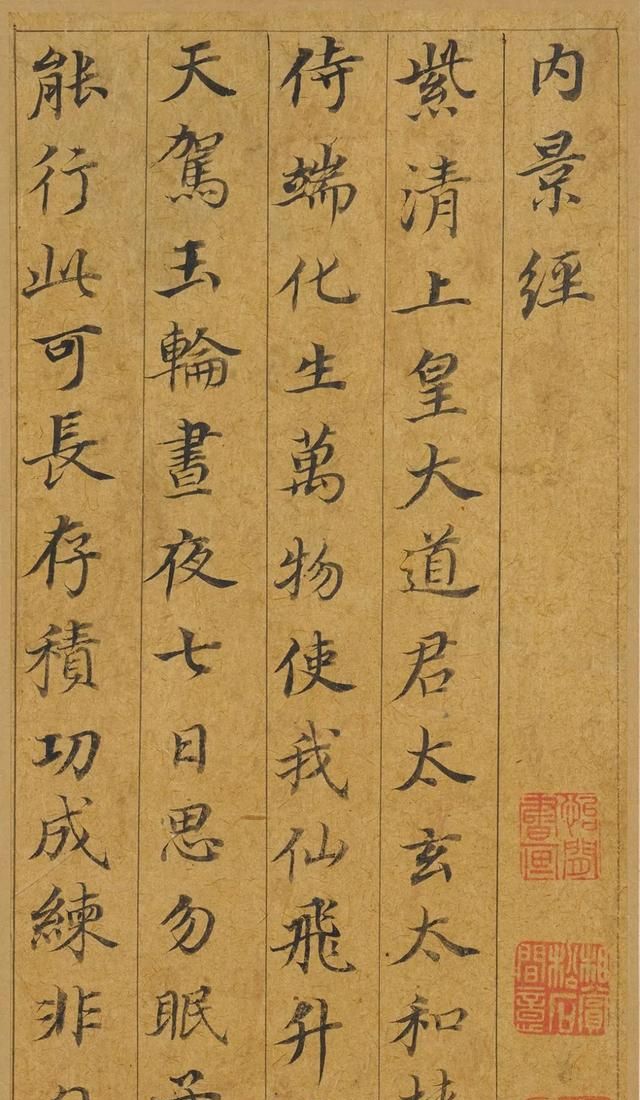 内景經
紫清上皇大道君太玄太和
侍端化生萬物使我仙飛升
天駕玉輪晝夜七日思勿眠
能行此可長存積功成練非